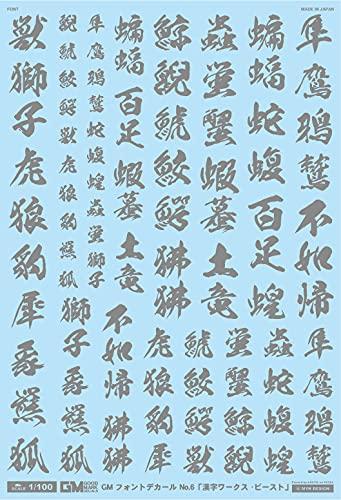 FONT
MADE IN JAPAN
隼鷹鴉鷲不如帰
蝙蝠蛇蝮百足蝗
蟲蛍蟹蟇土竜
鯨鯢鯱鮫鰐狒狒
蝙蝠百足蝦蟇土竜
隼鷹鴉鷲蝮蝗蟲蛍獅子
鯢鯱鮫鰐獣虎狼豹犀豕羆狐
獣獅子虎狼豹犀豕羆狐
隼鷹鴉鷲
蟲蛇蝮蝗
鯱鮫鰐
虎狼豹犀
不如帰狒狒
獅子豕羆狐
SCALE 1/100 GM GOOD MARK DECALS GM フォントデカール No.6「漢字ワークス・ビースト」 MYK DESIGN